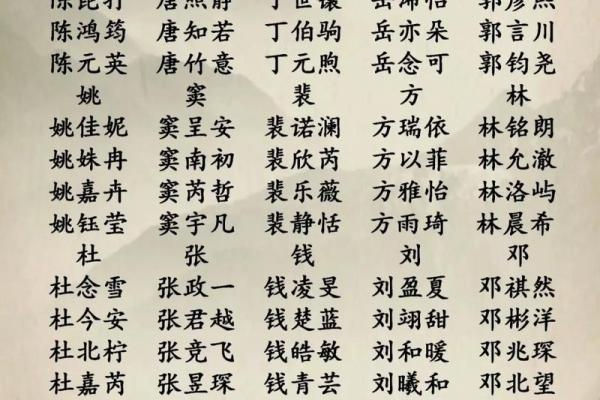 陈鸿筠 唐知若 丁伯驹 岳亦朵 郭言川
陈元英 唐竹意 丁元煦 岳念可 郭钧尧
姚 窦 裴 方 林
姚佳妮 窦呈安 裴诺澜 方瑞依 林铭朗
姚姝冉 窦南初 裴欣芮 方以菲 林允澈
姚嘉卉 窦芮哲 裴乐薇 方雅怡 林洛屿
姚钰莹 窦宇凡 裴静恬 方雨琦 林晨希
杜 张 钱 刘 邓
杜念雪 张政一 钱凌旻 刘盈夏 邓祺然
杜今安 张君越 钱楚蓝 刘翊甜 邓彬洋
杜北柠 张竞飞 钱皓敏 刘和暖 邓兆琛
杜嘉芮 张昱琛 钱青芸 刘曦和 邓北望